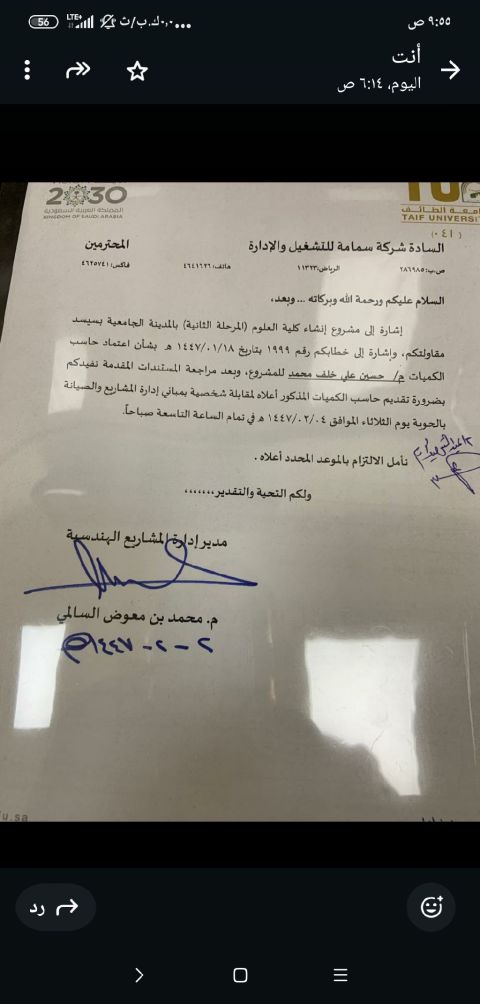 ٩:٥٥ ص
٠,٠ك.ب/ث
LTE+
56
أنت
اليوم، ٦:١٤ ص
2030
المملكة العربية السعودية
KINGDOM OF SAUDI ARABIA
TU
جامعة الطائف
TAIF UNIVERSITY
(٠٤١)
السادة شركة سمامة للتشغيل والإدارة المحترمين
ص.ب: ٢٨٦٩٨٥ الرياض: ١١٣٢٣ هاتف: ٤٦٤١٦٢٦ فاكس: ٤٦٢٥٧٤١
السلام عليكم ورحمة الله وبركاته ... وبعد،
إشارة إلى مشروع إنشاء كلية العلوم (المرحلة الثانية) بالمدينة الجامعية بسيسد
مقاولتكم، وإشارة إلى خطابكم رقم ١٩٩٩ بتاريخ ١٤٤٧/٠١/١٨ هـ بشأن اعتماد حاسب
الكميات م/ حسين علي خلف محمد للمشروع، وبعد مراجعة المستندات المقدمة نفيدكم
بضرورة تقديم حاسب الكميات المذكور أعلاه لمقابلة شخصية بمباني إدارة المشاريع والصيانة
بالحوية يوم الثلاثاء الموافق ١٤٤٧/٠٢/٠٤ هـ في تمام الساعة التاسعة صباحاً.
نأمل الالتزام بالموعد المحدد أعلاه.
ولكم التحية والتقدير،،،،،،،
مدير إدارة المشاريع الهندسية
م. محمد بن معوض السالمي
٢ - ٢ - ١٤٤٧هـ
u.sa
رد